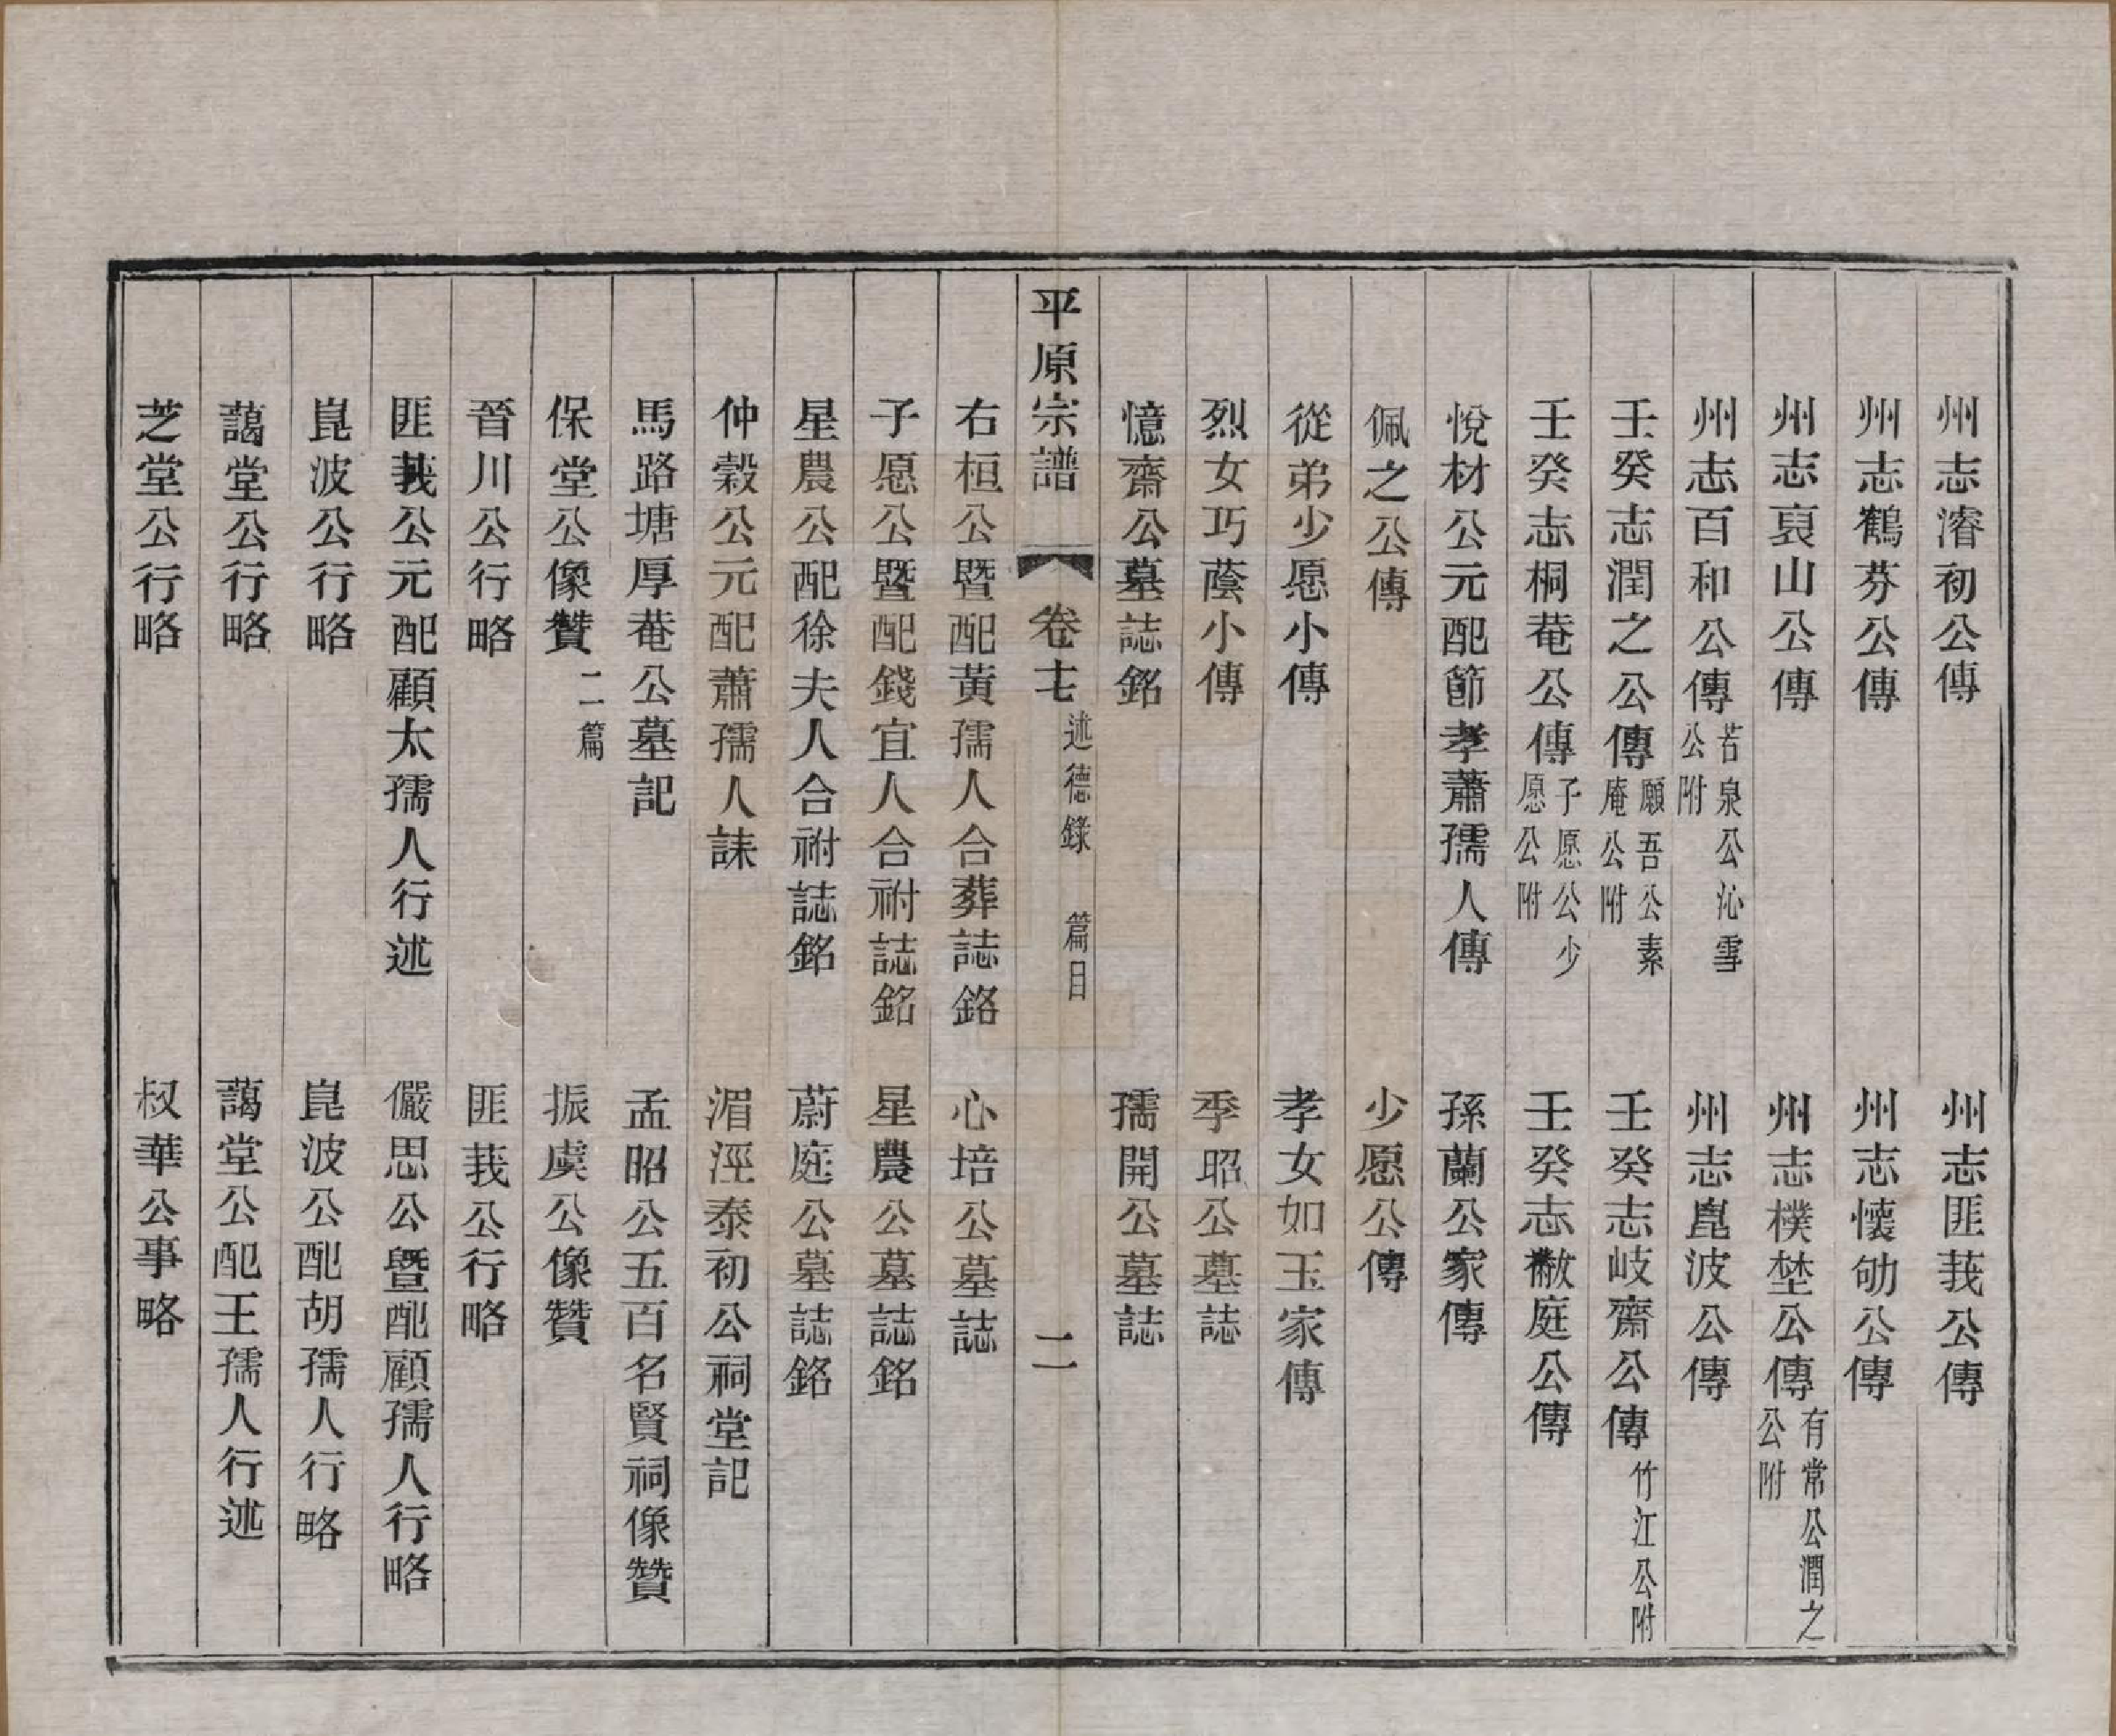 州志濬初公傳　州志匪莪公傳
州志鶴芬公傳　州志懷劬公傳
州志裒山公傳　州志樸埜公傳有常公潤之公附
州志百和公傳苦泉公沁雪公附　州志崑波公傳
壬癸志潤之公傳願吾公素庵公附　壬癸志岐齋公傳竹江公附
壬癸志桐菴公傳子愿公少愿公附　壬癸志黻庭公傳
悅材公元配節孝蕭孺人傳　孫蘭公家傳
佩之公傳　少愿公傳
從弟少愿小傳　孝女如玉家傳
烈女巧蔭小傳　季昭公墓誌
憶齋公墓誌銘　孺開公墓誌
平原宗譜　卷十七　述德錄　篇目　二
右桓公暨配黃孺人合葬誌銘　心培公墓誌
子愿公暨配錢宜人合祔誌銘　星農公墓誌銘
星農公配徐夫人合祔誌銘　蔚庭公墓誌銘
仲穀公元配蕭孺人誄　湄涇泰初公祠堂記
馬路塘厚菴公墓記　孟昭公五百名賢祠像贊
保堂公像贊二篇　振虞公像贊
晉川公行略　匪莪公行略
匪莪公元配顧太孺人行述　儼思公暨配顧孺人行略
崑波公行略　崑波公配胡孺人行略
藹堂公行略　藹堂公配王孺人行述
芝堂公行略　叔華公事略